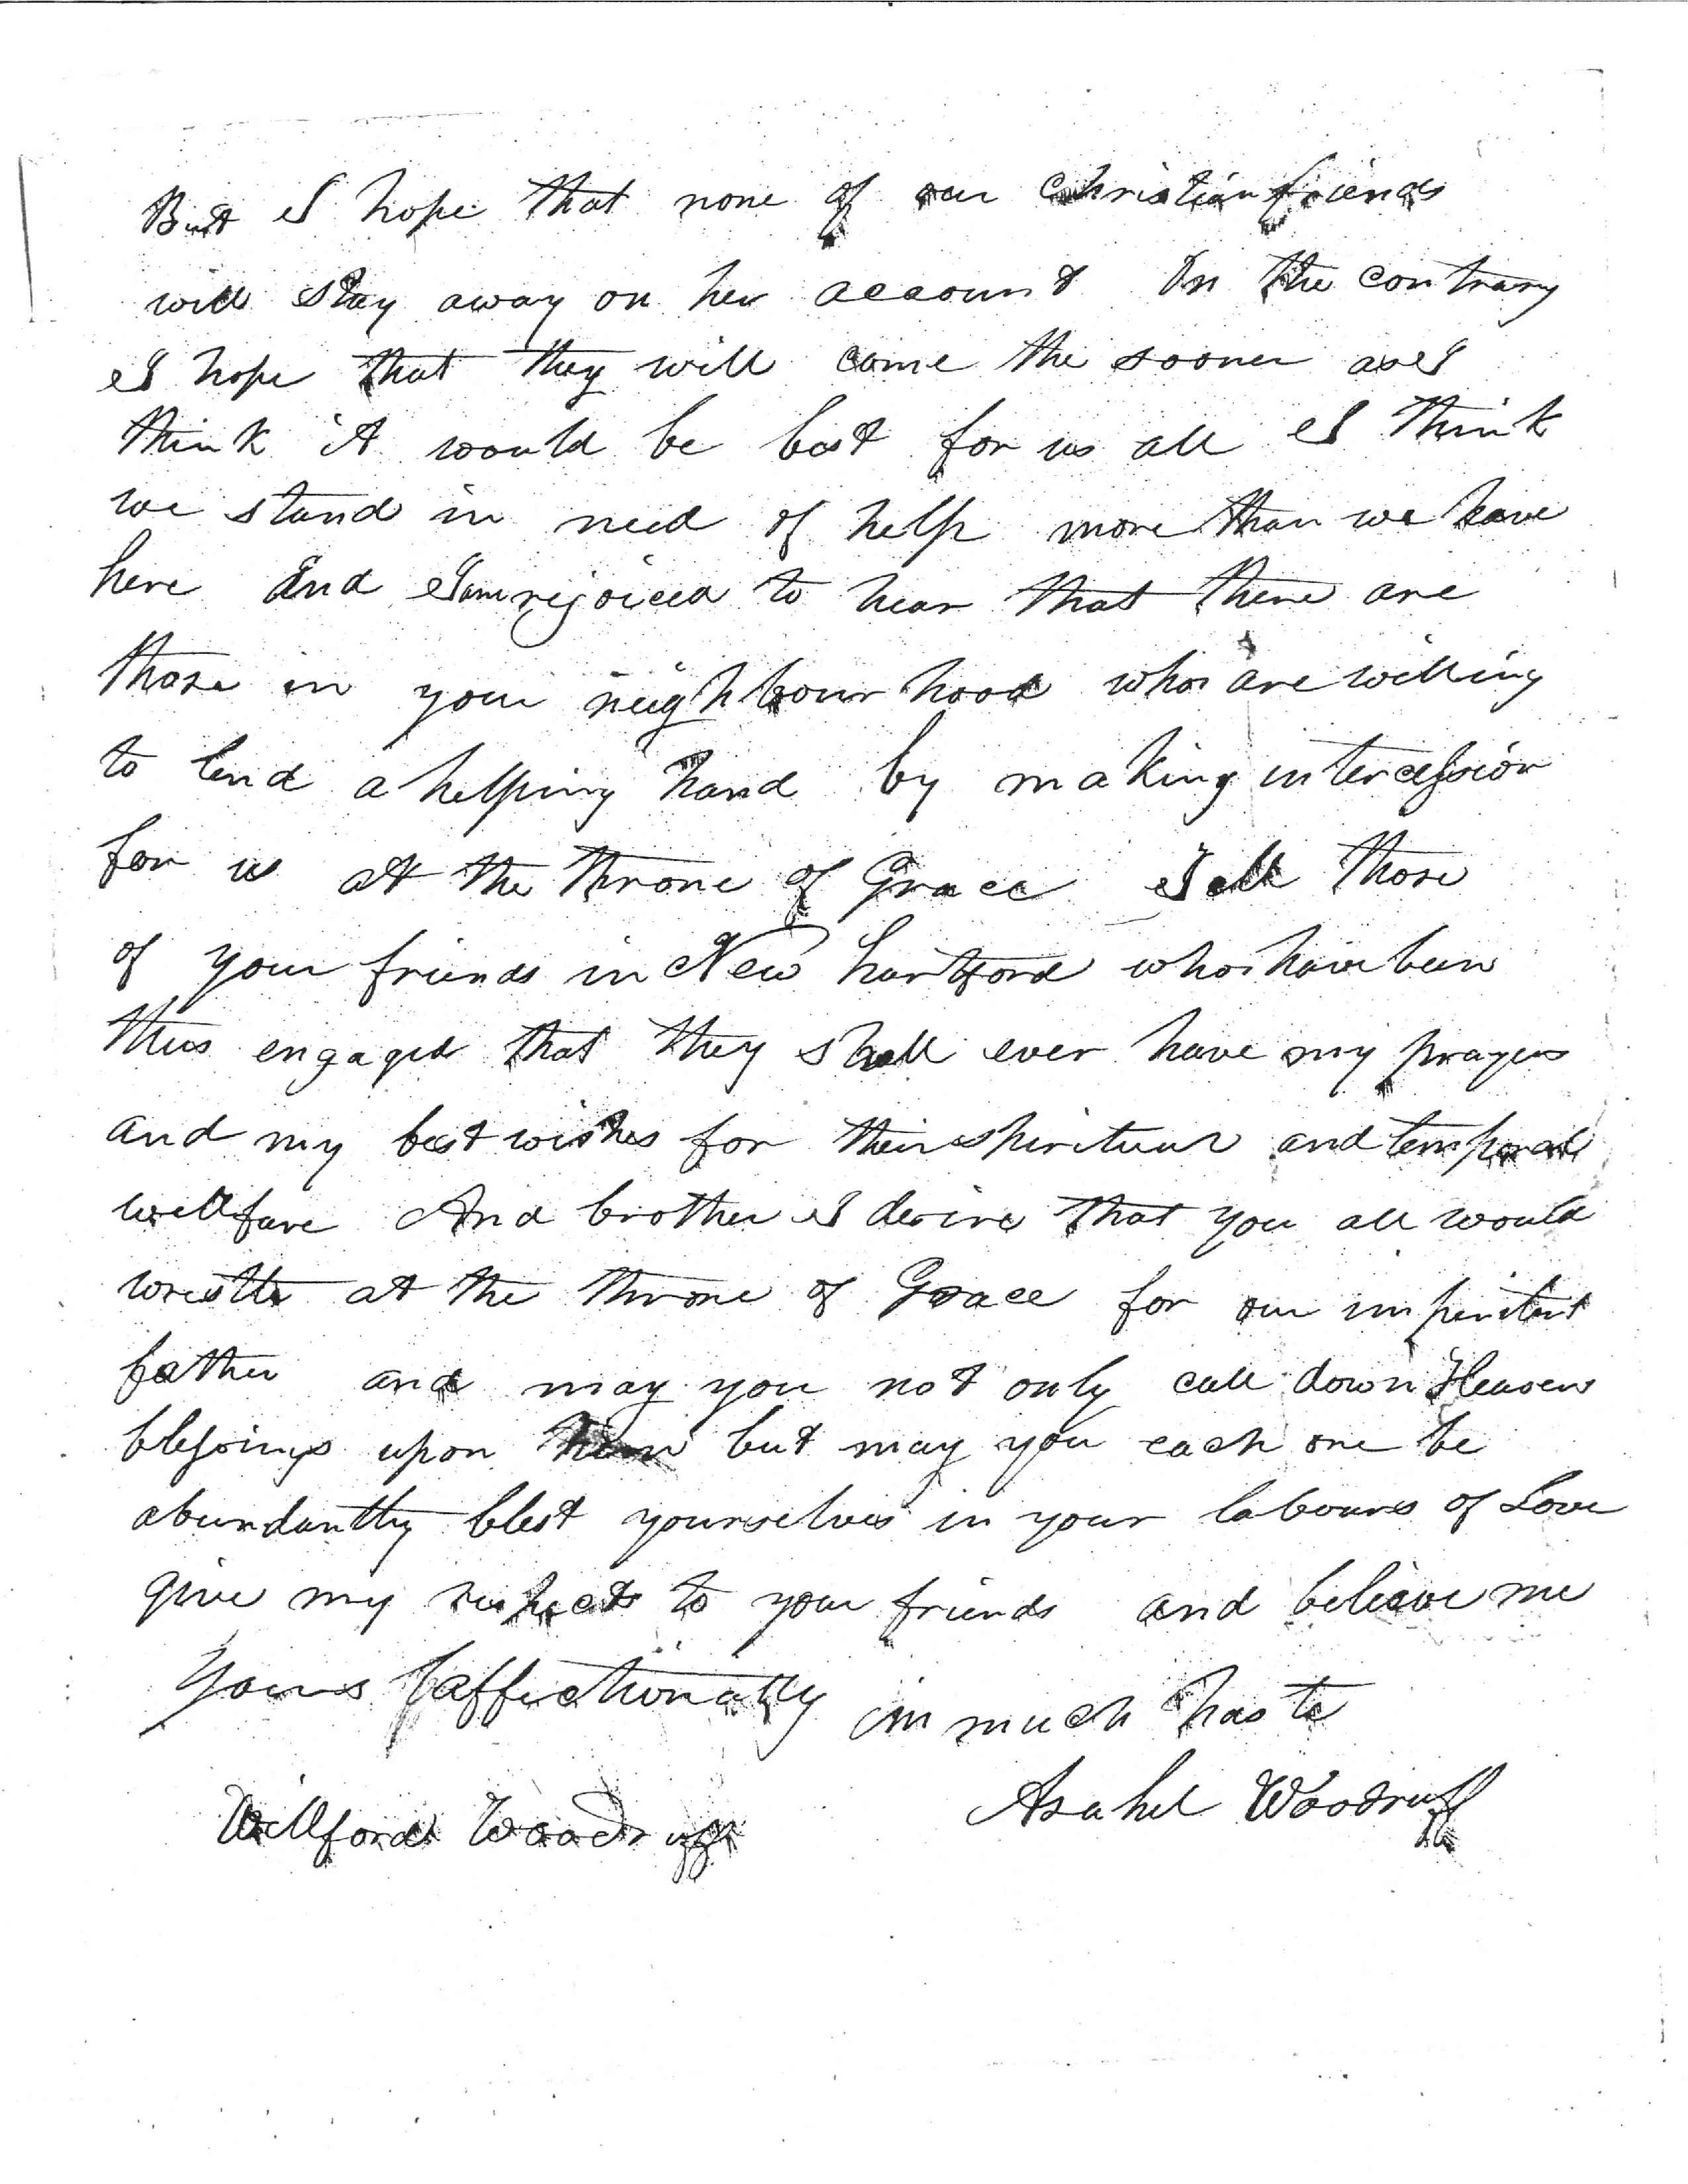 But I hope that none of our Christian friends
will stay away on her account On the contrary
I hope that they will come the sooner as I
think it would be best for us all I think
we stand in need of help more than we have
here And I am rejoiced to hear that there are
those in your neighbourhood who are willing
to lend a helping hand by making intercession
for us at the throne of Grace Tell those
of your friends in New hartford who have been
thus engaged that they shall ever have my prayers
and my best wishes for their spiritual and temporal
wellfare And brother I desire that you all would
wrestle at the throne of Grace for our impenitent
father and may you not only call down Heavens
blessings upon him but may you each one be
abundantly blest yourselves in your labours of Love
give my respects to your friends and believe me
Yours affectionatly in much haste
Willford Woodruff Asahel Woodruff